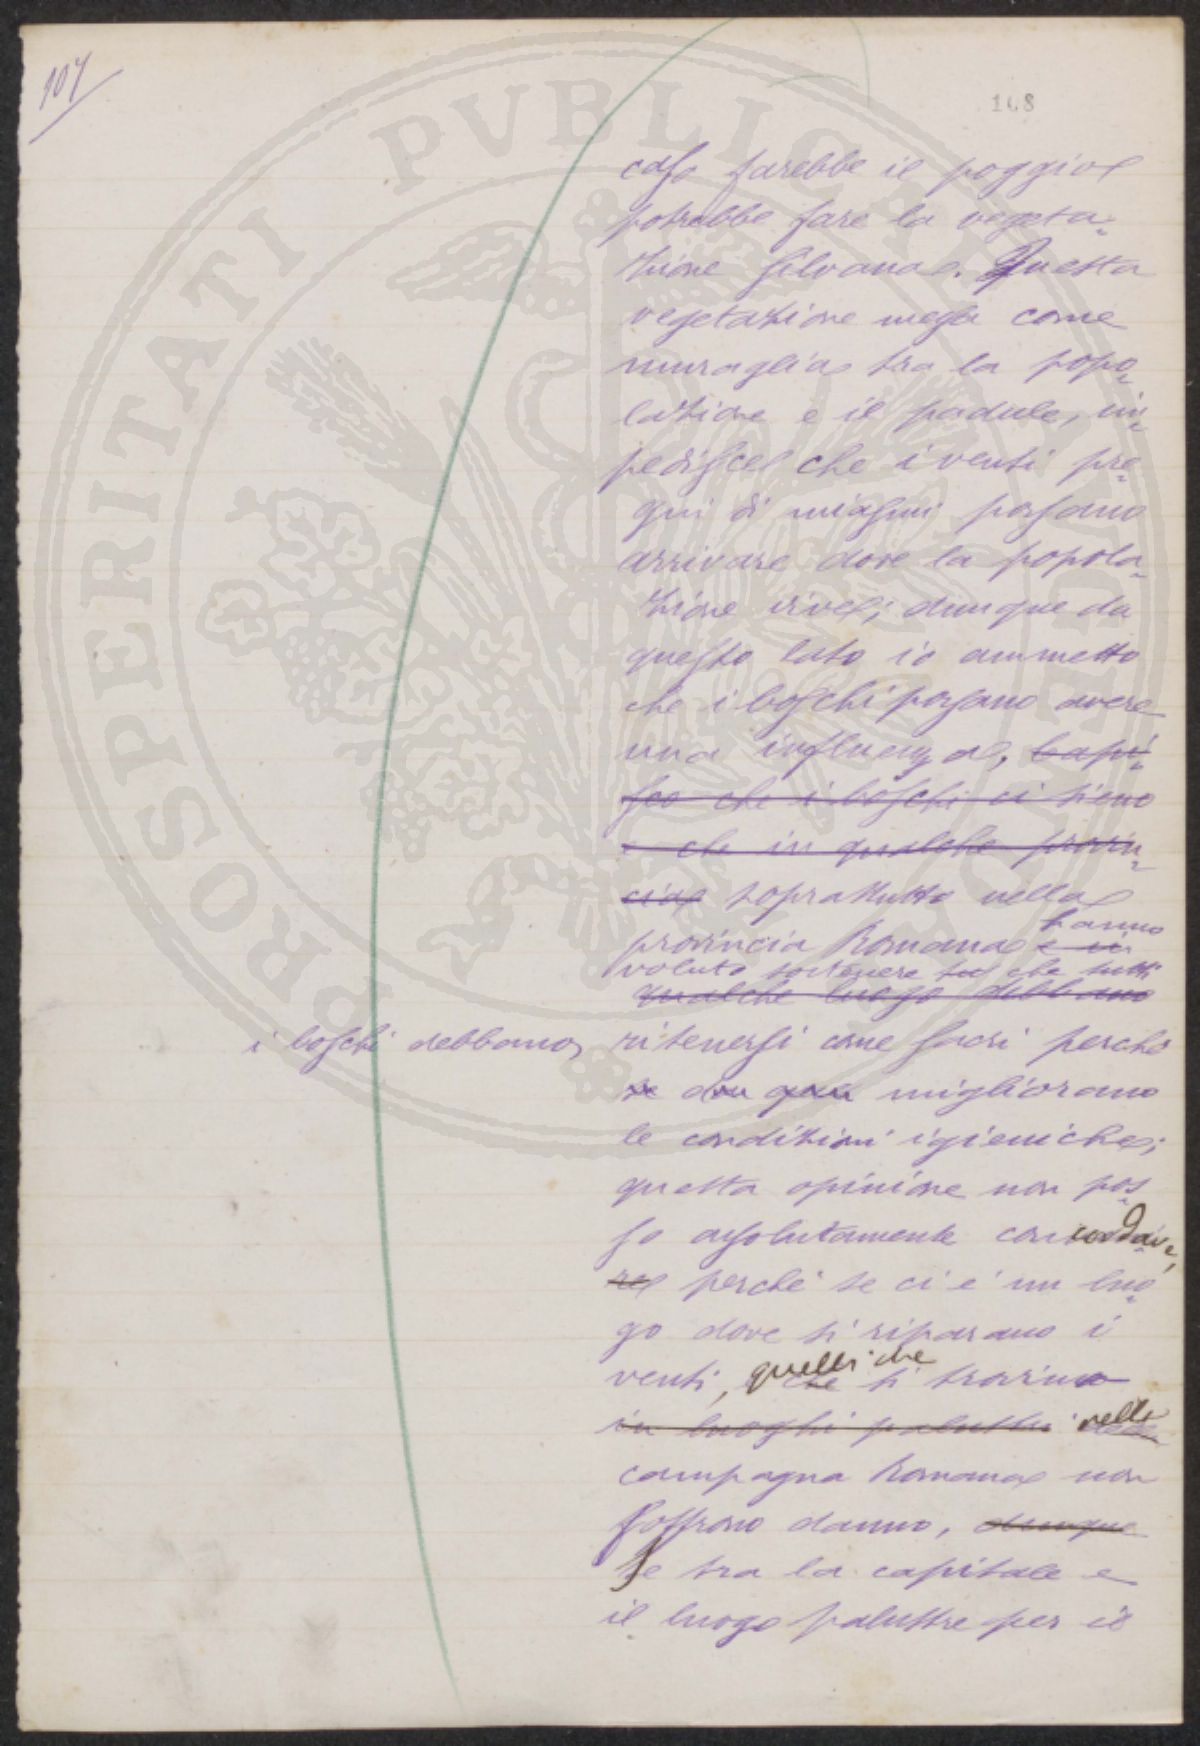 107
108
PROSPERITATI PVBLICAE
caso farebbe il poggio
potrebbe fare la vegeta-
zione silvana. Questa
vegetazione messa come
muraglia tra la popo-
lazione e il padule, im-
pedisce che i venti pre-
gni di miasmi possano
arrivare dove la popola-
zione vive; dunque da
questo lato io ammetto
che i boschi possano avere
una influenza, capi-
sco che i boschi ci sieno
e che in qualche provin-
cia soprattutto nella
provincia Romana e in
hanno
voluto sostenere che tutti
qualche luogo debbano
i boschi debbano
ritenersi come sacri perché
migliorano
le condizioni igieniche;
questa opinione non pos-
so assolutamente concorda-
re perché se ci è un luo-
go dove si riparano i
venti, quelli che si trovino
in luoghi palustri nella
campagna Romana non
soffrono danno, dunque
Se tra la capitale e
il luogo palustre per is